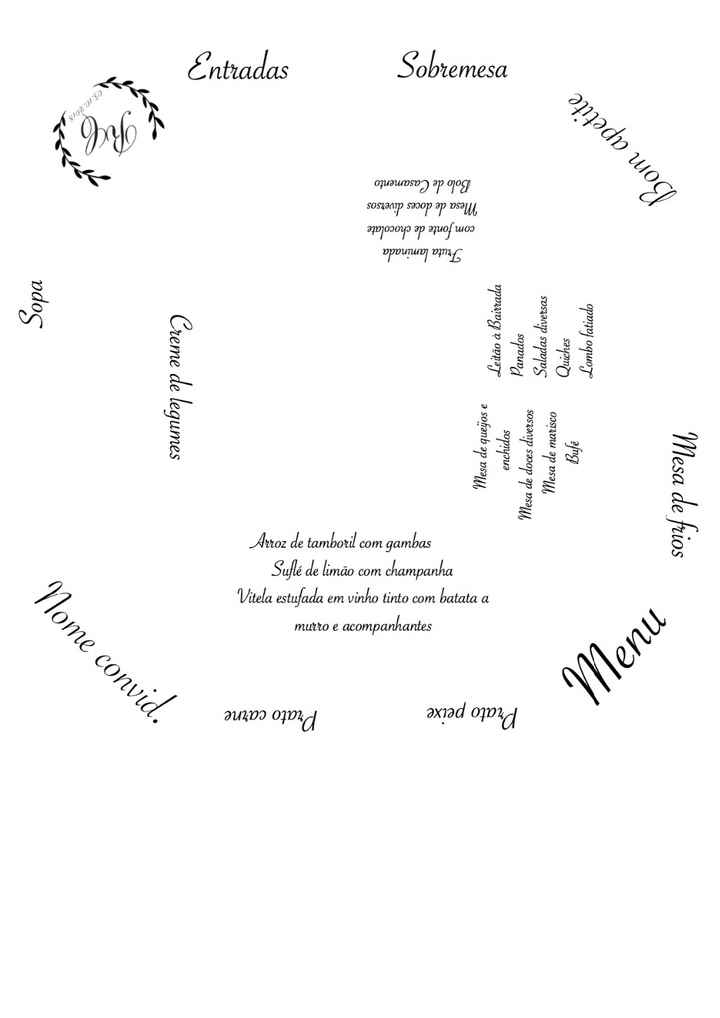 Entradas
Sobremesa
Bom apetite
05.10.2018
Bolo de Casamento
Mesa de doces diversos
com fonte de chocolate
Fruta laminada
Sopa
Creme de legumes
Leitão à Bairrada
Panados
Saladas diversas
Quiches
Lombo fatiado
Mesa de queijos e
enchidos
Mesa de doces diversos
Mesa de marisco
Bufé
Mesa de frios
Arroz de tamboril com gambas
Suflé de limão com champanha
Vitela estufada em vinho tinto com batata a
murro e acompanhantes
Nome convid.
Menu
Prato carne
Prato peixe